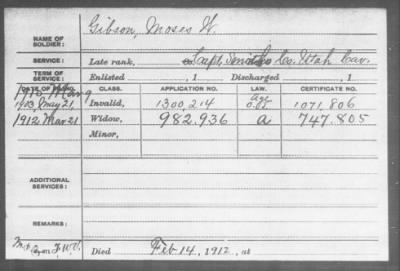 Gibson, Moses W.
NAME OF SOLDIER:
SERVICE: Late rank, Capt. Smith's Co. Utah Cav.
TERM OF SERVICE: Enlisted , 1 Discharged , 1
DATE OF FILING. CLASS. APPLICATION NO. LAW. CERTIFICATE NO.
Age
May 21, Invalid, 1300,214 1071,806
1912 Mar 21 Widow, 982.936 a 747.805
Minor,
ADDITIONAL SERVICES:
REMARKS:
Died Feb 14, 1912, at